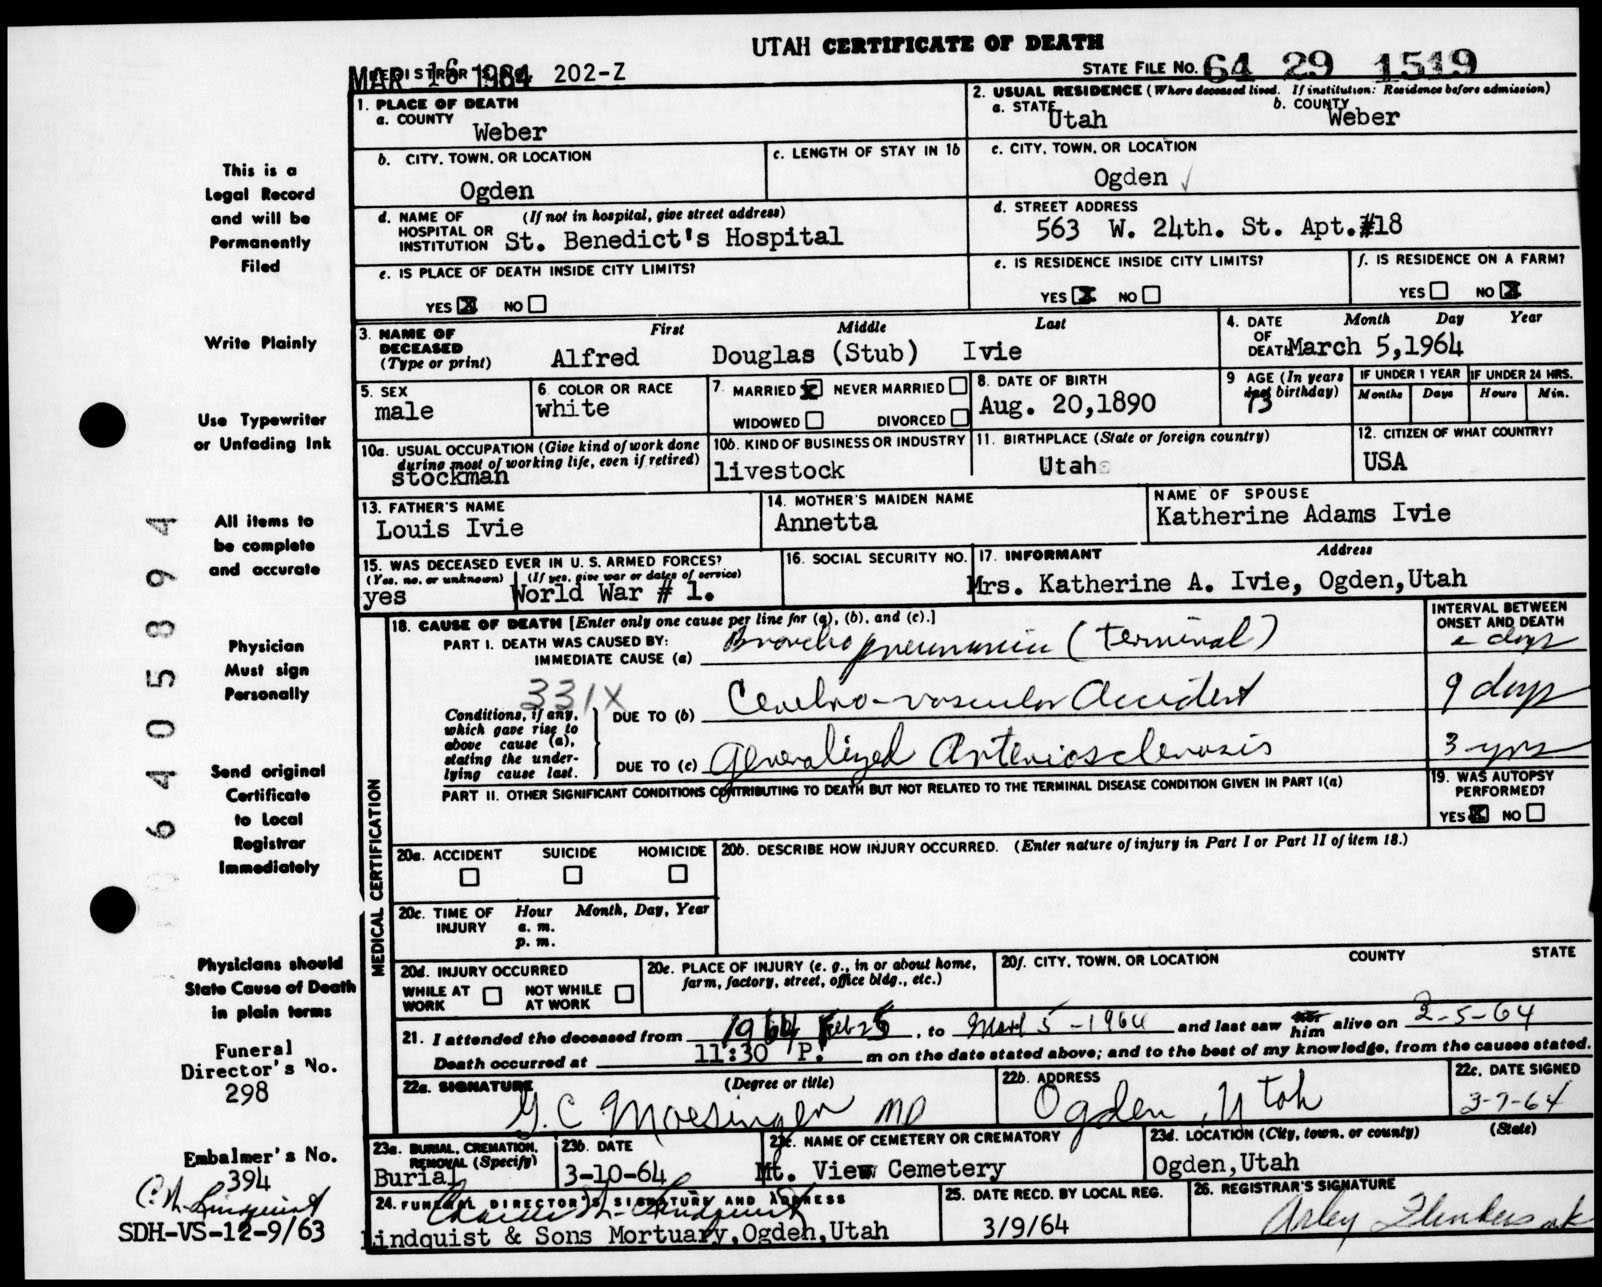 UTAH CERTIFICATE OF DEATH
MAR 16 1964 REGISTRAR'S NO. 202-Z
STATE FILE NO. 64 29 1519
1. PLACE OF DEATH
a. COUNTY
Weber
2. USUAL RESIDENCE (Where deceased lived. If institution: Residence before admission)
a. STATE Utah b. COUNTY Weber
b. CITY, TOWN, OR LOCATION
Ogden
c. LENGTH OF STAY IN 1b
c. CITY, TOWN, OR LOCATION
Ogden ✓
d. NAME OF HOSPITAL OR INSTITUTION (If not in hospital, give street address)
St. Benedict's Hospital
d. STREET ADDRESS
563 W. 24th. St. Apt.#18
e. IS PLACE OF DEATH INSIDE CITY LIMITS?
YES ☒ NO ☐
e. IS RESIDENCE INSIDE CITY LIMITS?
YES ☒ NO ☐
f. IS RESIDENCE ON A FARM?
YES ☐ NO ☒
3. NAME OF DECEASED (Type or print)
First Middle Last
Alfred Douglas (Stub) Ivie
4. DATE OF DEATH Month Day Year
March 5,1964
5. SEX
male
6. COLOR OR RACE
white
7. MARRIED ☒ NEVER MARRIED ☐
WIDOWED ☐ DIVORCED ☐
8. DATE OF BIRTH
Aug. 20,1890
9 AGE (In years last birthday)
73
IF UNDER 1 YEAR
Months Days
IF UNDER 24 HRS.
Hours Min.
10a. USUAL OCCUPATION (Give kind of work done
during most of working life, even if retired)
stockman
10b. KIND OF BUSINESS OR INDUSTRY
livestock
11. BIRTHPLACE (State or foreign country)
Utah
12. CITIZEN OF WHAT COUNTRY?
USA
13. FATHER'S NAME
Louis Ivie
14. MOTHER'S MAIDEN NAME
Annetta
NAME OF SPOUSE
Katherine Adams Ivie
15. WAS DECEASED EVER IN U. S. ARMED FORCES?
(Yes, no, or unknown) (If yes, give war or dates of service)
yes World War # 1.
16. SOCIAL SECURITY NO.
17. INFORMANT Address
Mrs. Katherine A. Ivie, Ogden,Utah
MEDICAL CERTIFICATION
18. CAUSE OF DEATH [Enter only one cause per line for (a), (b), and (c).]
INTERVAL BETWEEN ONSET AND DEATH
PART I. DEATH WAS CAUSED BY:
IMMEDIATE CAUSE (a) Bronchopneumonia (terminal) days
331X
Conditions, if any,
which gave rise to
above cause (a),
stating the under-
lying cause last.
DUE TO (b) Cerebro-vascular Accident 9 days
DUE TO (c) Generalized Arteriosclerosis 3 yrs
PART II. OTHER SIGNIFICANT CONDITIONS CONTRIBUTING TO DEATH BUT NOT RELATED TO THE TERMINAL DISEASE CONDITION GIVEN IN PART I(a)
19. WAS AUTOPSY PERFORMED?
YES ☒ NO ☐
20a. ACCIDENT SUICIDE HOMICIDE
☐ ☐ ☐
20b. DESCRIBE HOW INJURY OCCURRED. (Enter nature of injury in Part I or Part II of item 18.)
20c. TIME OF INJURY Hour Month, Day, Year
a. m.
p. m.
20d. INJURY OCCURRED
WHILE AT WORK ☐ NOT WHILE AT WORK ☐
20e. PLACE OF INJURY (e. g., in or about home,
farm, factory, street, office bldg., etc.)
20f. CITY, TOWN, OR LOCATION COUNTY STATE
21. I attended the deceased from 1964 Feb 25, to March 5 - 1964 and last saw her him alive on 2-5-64
Death occurred at 11:30 P. m on the date stated above; and to the best of my knowledge, from the causes stated.
22a. SIGNATURE (Degree or title)
G. C. Moesinger MD
22b. ADDRESS
Ogden, Utah
22c. DATE SIGNED
3-7-64
23a. BURIAL, CREMATION,
REMOVAL (Specify)
Burial
23b. DATE
3-10-64
23c. NAME OF CEMETERY OR CREMATORY
Mt. View Cemetery
23d. LOCATION (City, town, or county) (State)
Ogden,Utah
24. FUNERAL DIRECTOR'S SIGNATURE AND ADDRESS
Lindquist
Lindquist & Sons Mortuary,Ogden,Utah
25. DATE RECD. BY LOCAL REG.
3/9/64
26. REGISTRAR'S SIGNATURE
Arley Flinders
This is a
Legal Record
and will be
Permanently
Filed
Write Plainly
Use Typewriter
or Unfading Ink
All items to
be complete
and accurate
Physician
Must sign
Personally
Send original
Certificate
to Local
Registrar
Immediately
Physicians should
State Cause of Death
in plain terms
Funeral
Director's No.
298
Embalmer's No.
394
C. N. Lindquist
SDH-VS-12-9/63
6405894